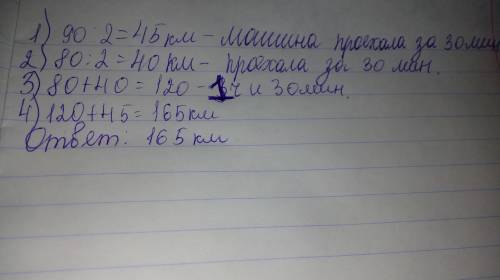 1) 90:2=45км - машина проехала за 30мин
2) 80:2=40км - проехала за 30 мин.
3) 80+40=120 - 1ч и 30мин.
4) 120+45=165км
Ответ: 165 км